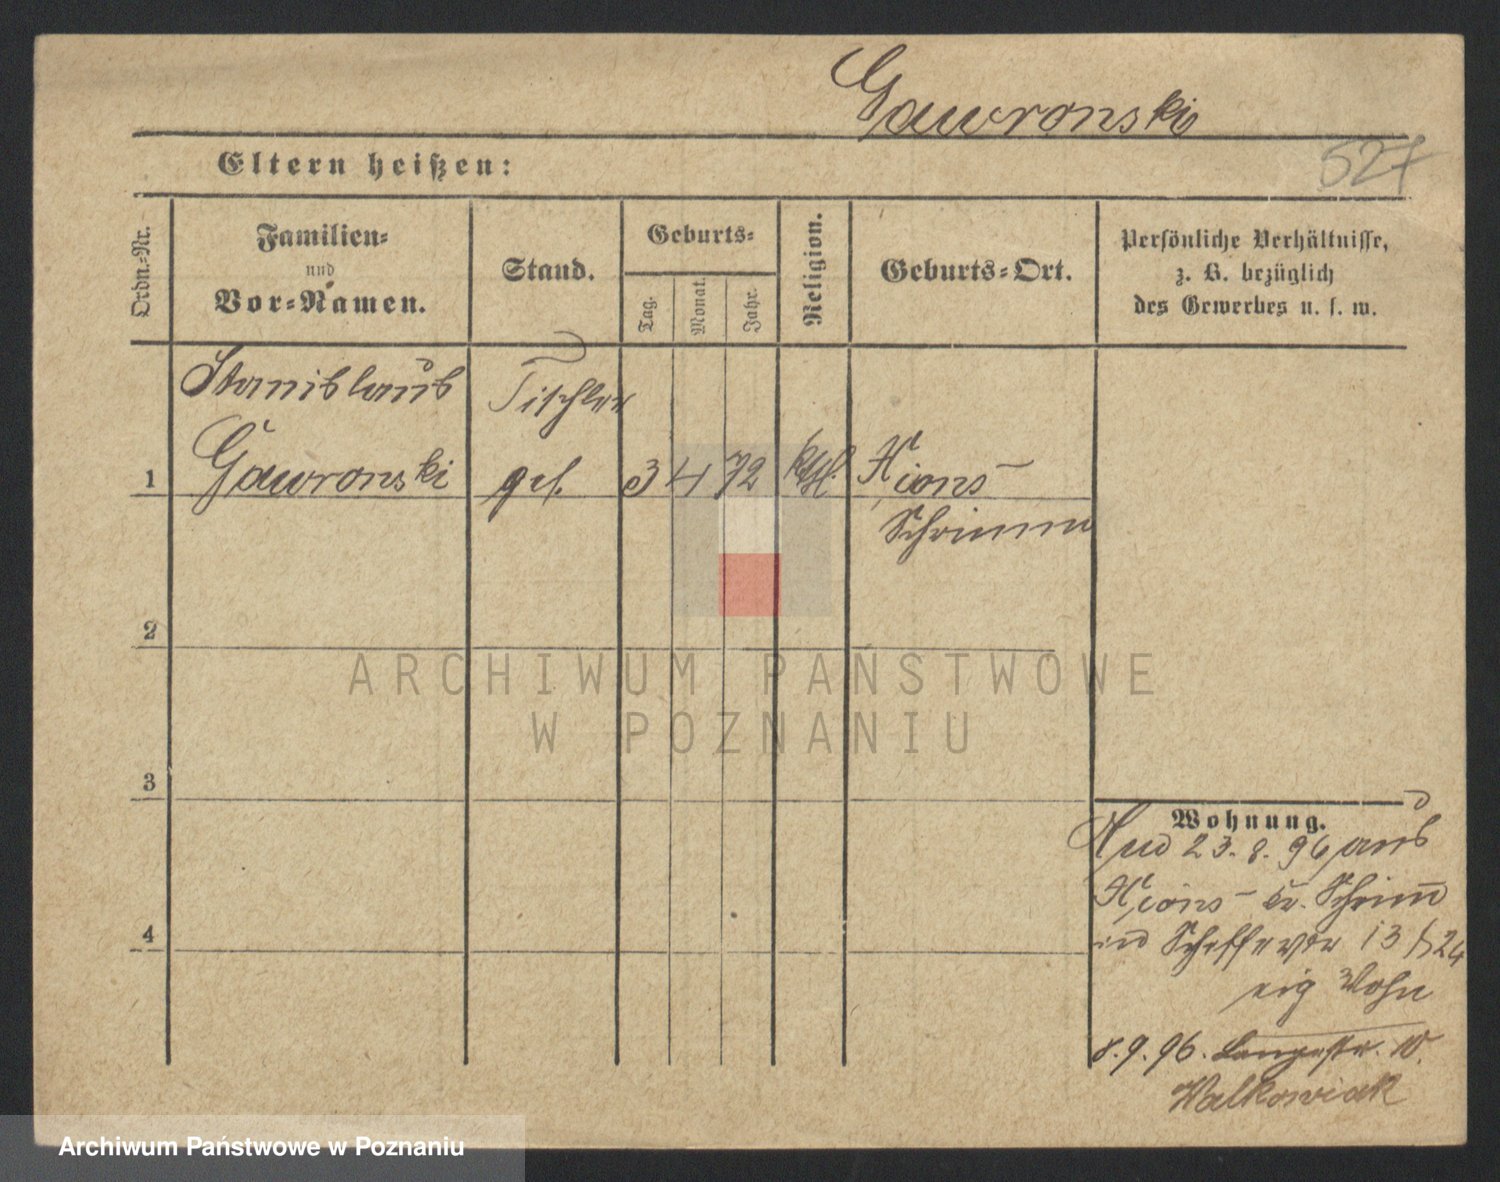 Gawronski
527
Eltern heißen:
Ordn.-Nr.
Familien-
und
Vor-Namen.
Stand.
Geburts-
Tag.
Monat.
Jahr.
Religion.
Geburts-Ort.
Persönliche Verhältnisse,
z. B. bezüglich
des Gewerbes u. s. w.
Stanislaus Tischler
1 Gawronski ges. 3 4 72 kth. Xions
Schrimm
2
3
4
Wohnung.
23.8.96 aus
Xions Kr. Schrimm
13
eig Wohn
8.9.96. Langestr. 10.
Walkowiak
ARCHIWUM PAŃSTWOWE
W POZNANIU
Archiwum Państwowe w Poznaniu